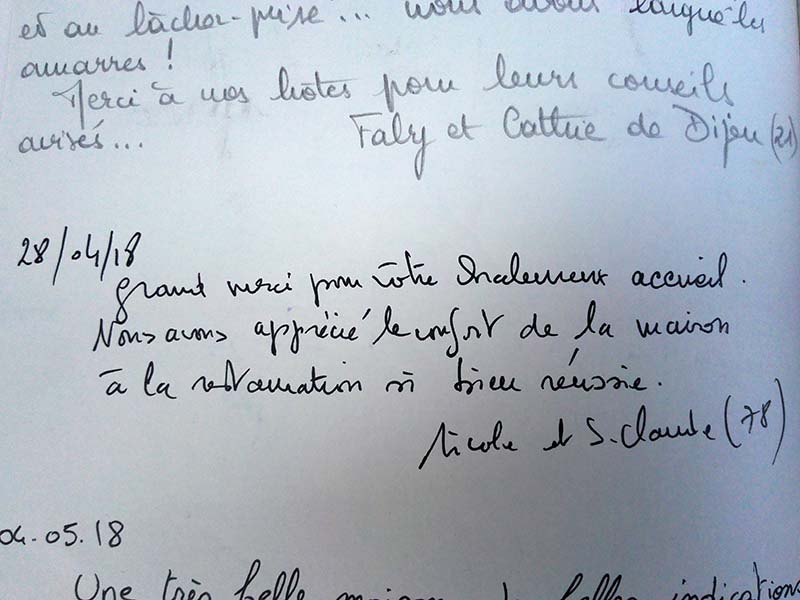 et au lâcher-prise... nous avons largué les
amarres !
Merci à nos hôtes pour leurs conseils
avisés... Faly et Cathie de Dijon (21)
28/04/18
grand merci pour votre chaleureux accueil.
Nous avons apprécié le confort de la maison
à la restauration si bien réussie.
Nicole et J. Claude (78)
04.05.18
Une très belle maison, de belles indications